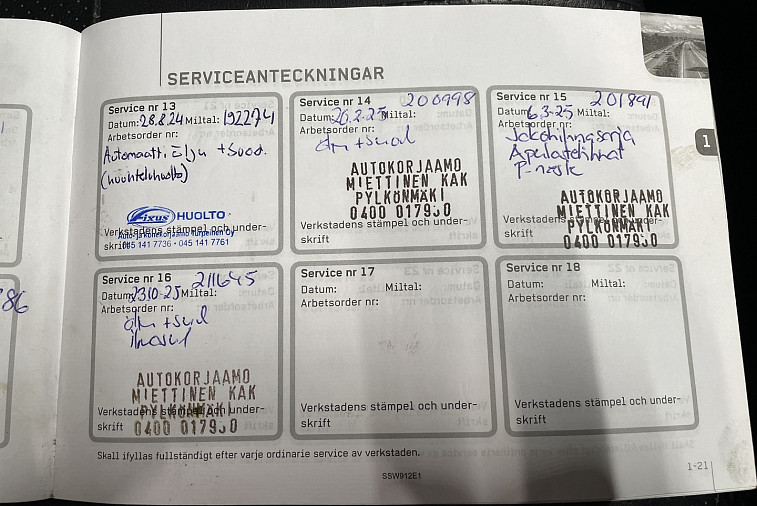 SERVICEANTECKNINGAR
Service nr 13
Datum: 28.8.24 Miltal: 192274
Arbetsorder nr:
Automaatti öljy + suod.
(huuhteluhuolto)
Fixus HUOLTO
Verkstadens stämpel och under-
skrift
045 141 7736 · 045 141 7761
Service nr 14
Datum: 26.2.25 Miltal: 200998
Arbetsorder nr:
öljy + suod
AUTOKORJAAMO
MIETTINEN KAK
PYLKÖNMÄKI
0400 017930
Verkstadens stämpel och under-
skrift
Service nr 15
Datum: 6.3-25 Miltal: 201891
Arbetsorder nr:
Jakohihnasarja
Apulaitehihnat
P-neste
AUTOKORJAAMO
MIETTINEN KAK
PYLKÖNMÄKI
0400 017930
Verkstadens stämpel och under-
skrift
Service nr 16
Datum: 23.10-25 Miltal: 211645
Arbetsorder nr:
öljy + suod
ilmasuod
AUTOKORJAAMO
MIETTINEN KAK
PYLKÖNMÄKI
0400 017930
Verkstadens stämpel och under-
skrift
Service nr 17
Datum: Miltal:
Arbetsorder nr:
Verkstadens stämpel och under-
skrift
Service nr 18
Datum: Miltal:
Arbetsorder nr:
Verkstadens stämpel och under-
skrift
Skall ifyllas fullständigt efter varje ordinarie service av verkstaden.
SSW912E1
1-21
1
86